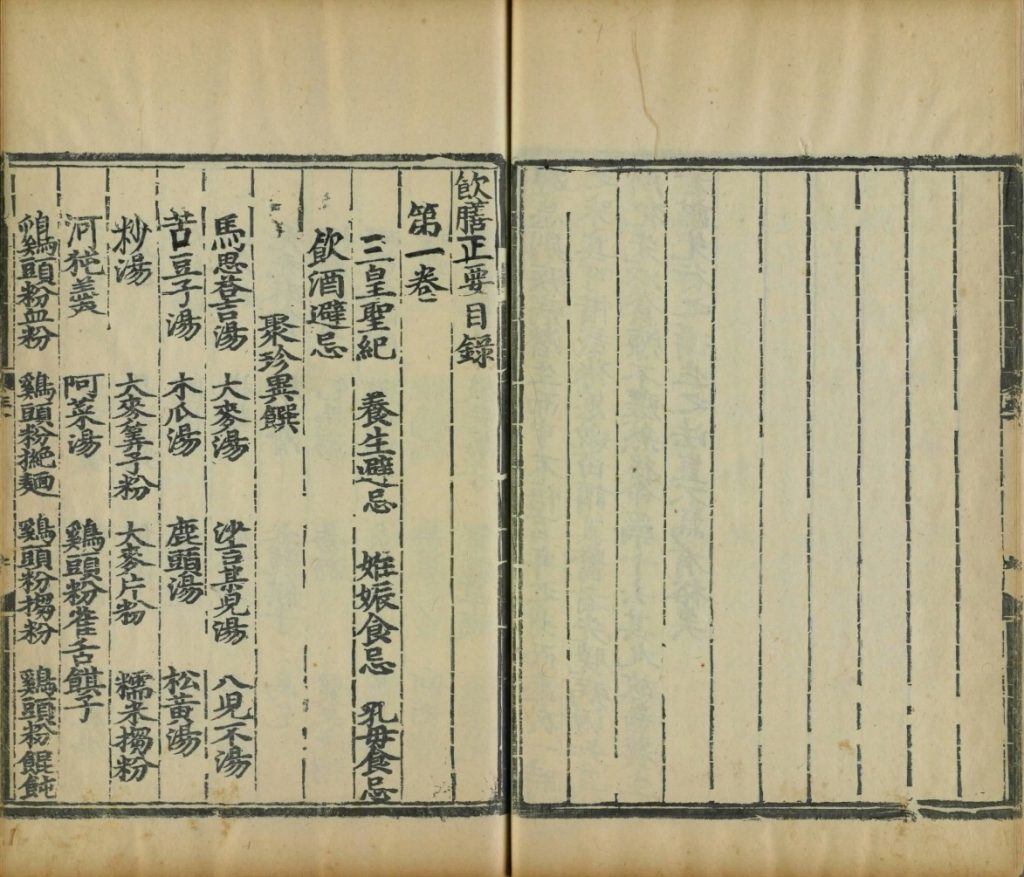 飲膳正要目錄
第一卷
三皇聖紀 養生避忌 姙娠食忌 乳母食忌
飲酒避忌
聚珍異饌
馬思荅吉湯 大麥湯 沙吉某兒湯 八兒不湯
苦豆子湯 木瓜湯 鹿頭湯 松黃湯
粆湯 大麥筭子粉 大麥片粉 糯米搊粉
河㹠羹 阿菜湯 鷄頭粉雀舌子
鷄頭粉血粉 鷄頭粉撧麵 鷄頭粉搊粉 鷄頭粉餛飩